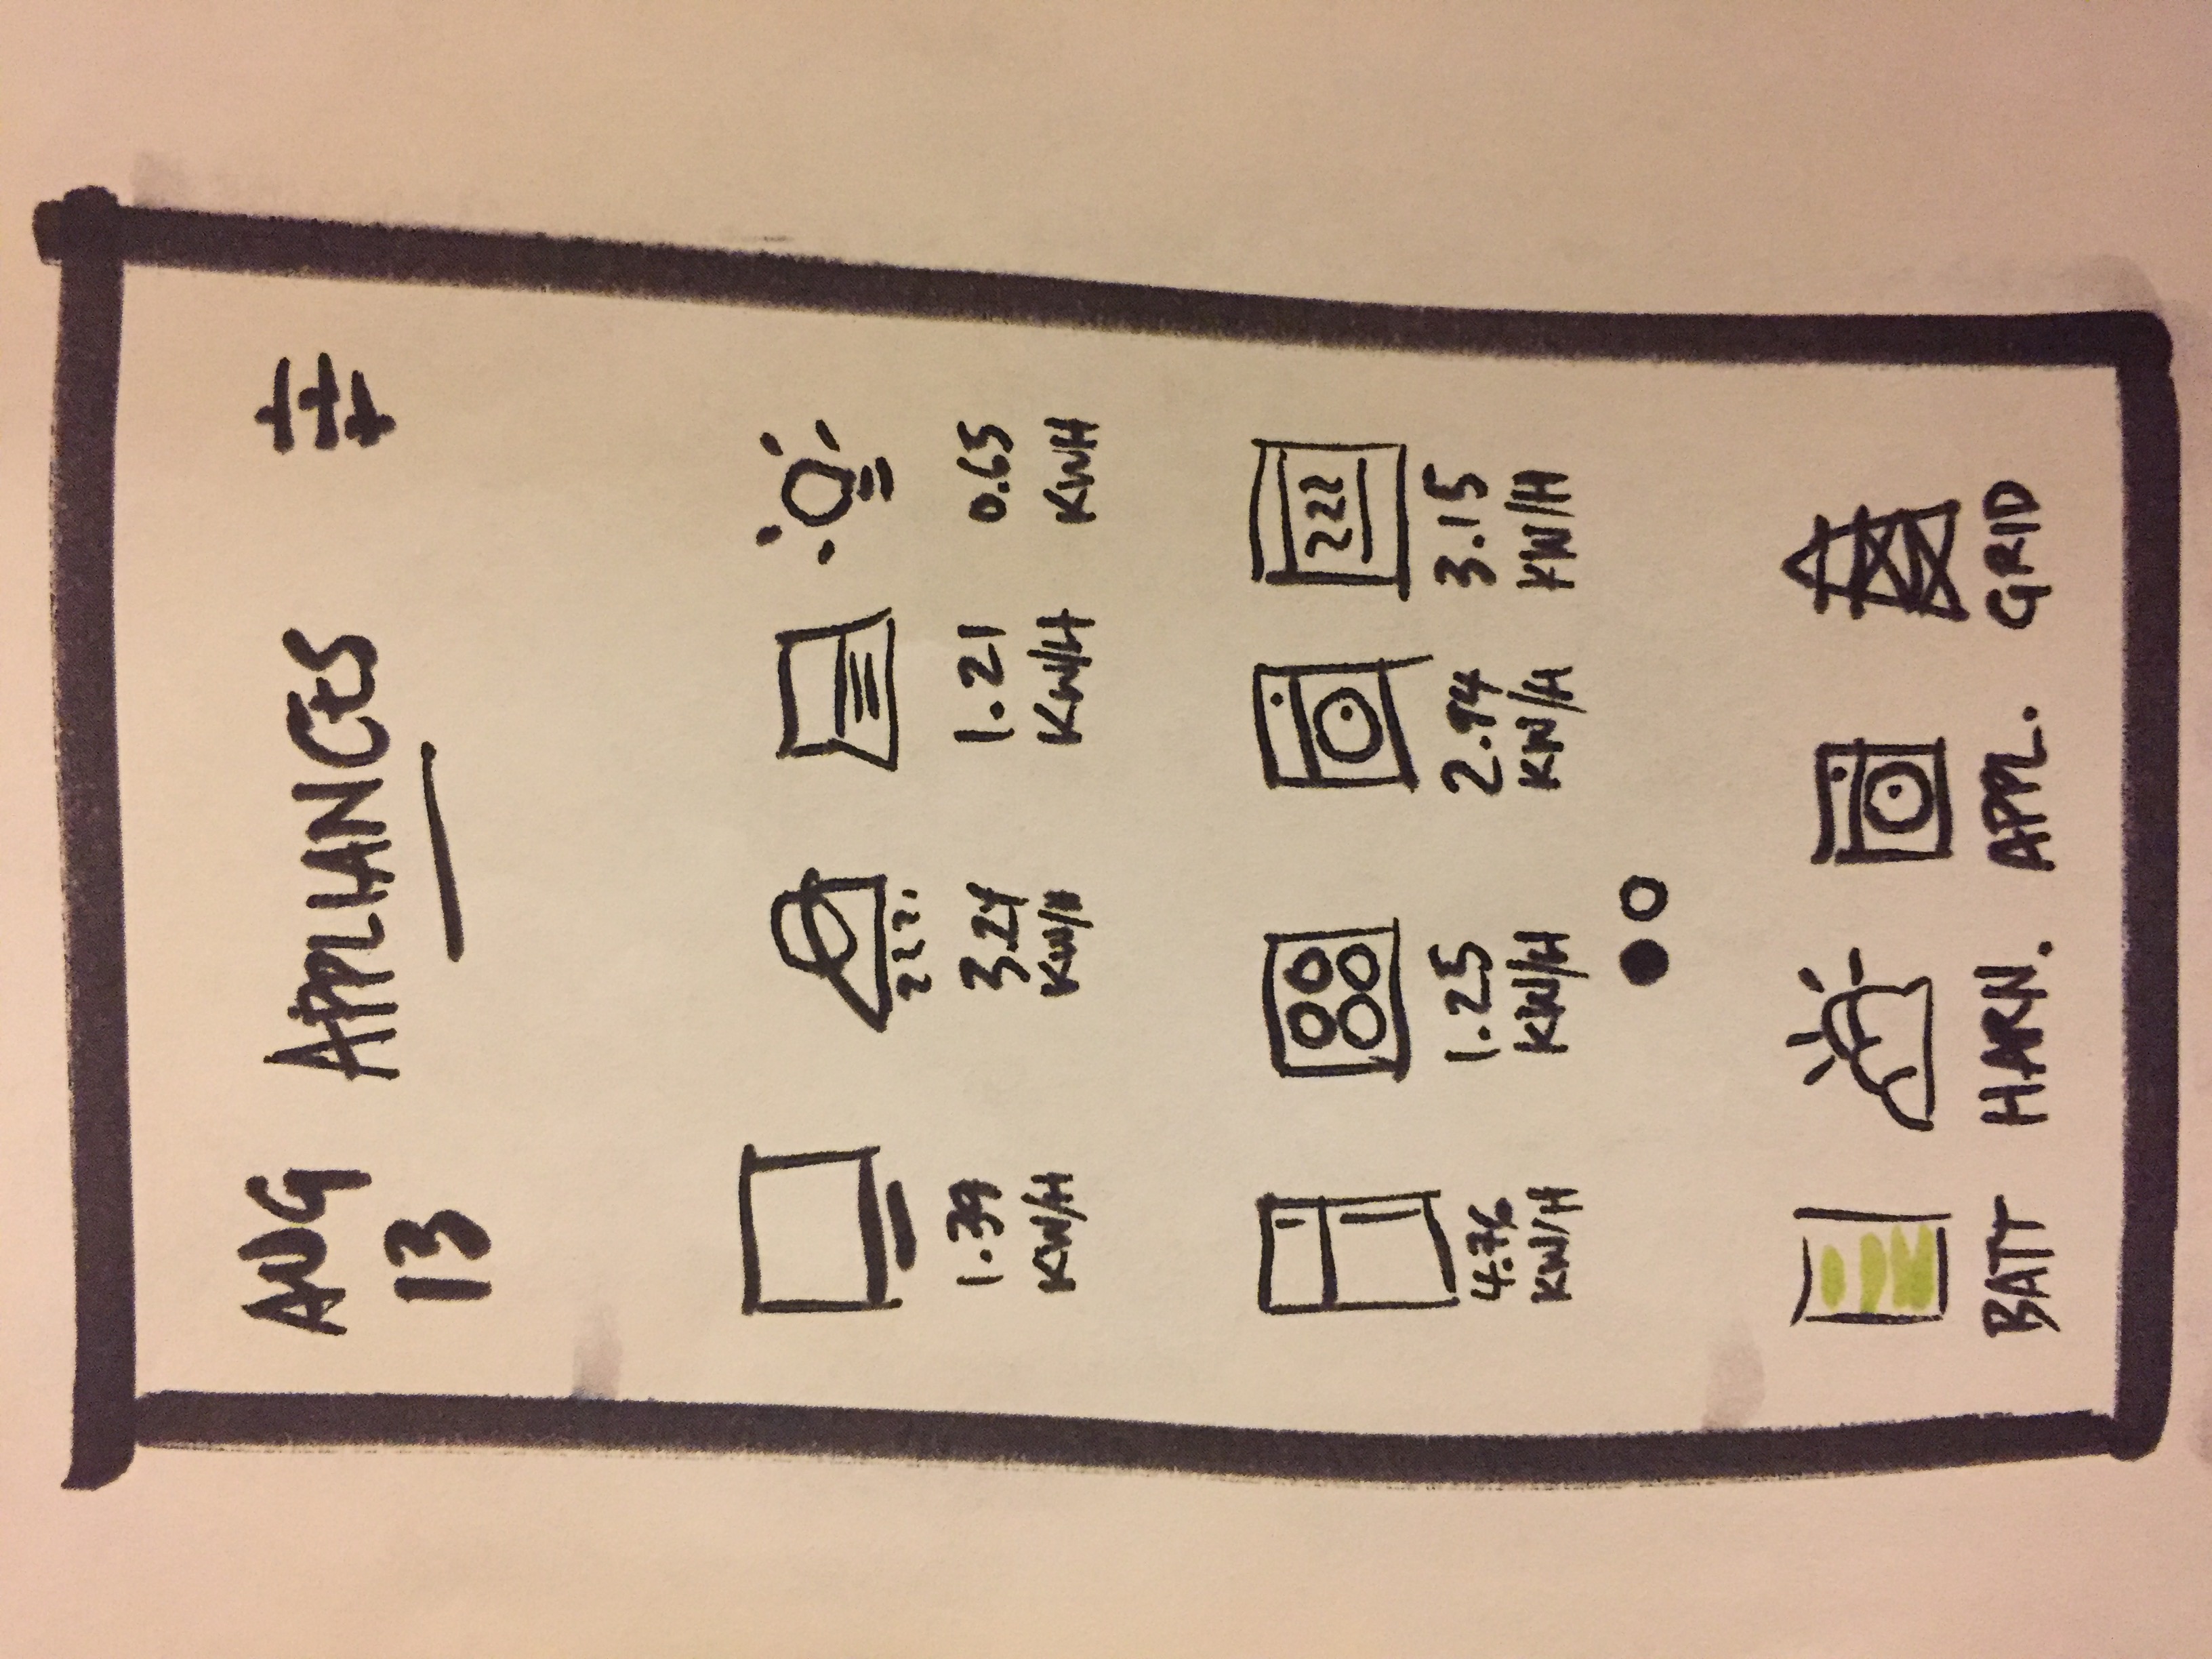 AUG
13
APPLIANCES
1.39
KW/H
3.24
KW/H
1.21
KW/H
0.65
KWH
4.76
KW/H
1.25
KW/H
2.94
KW/H
3.15
KW/H
BATT
HARN.
APPL.
GRID